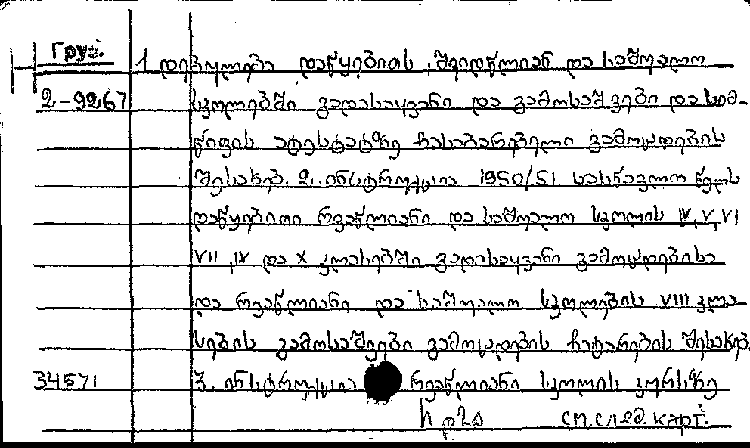 Груз.
1 დებულება დაწყებითს, შვიდწლიან და საშუალო
2-9267 სკოლებში გადასაყვანი და გამოსაშვები და სიმ-
წიფის ატესტატზე ჩასაბარებელი გამოცდების
შესახებ. 2. ინსტრუქცია 1950/51 სასწავლო წელს
დაწყებითი რვაწლიანი და საშუალო სკოლის IV, V, VI
VII, IX და X კლასებში გადასაყვანი გამოცდებისა
და რვაწლიანი და საშუალო სკოლების VIII კლა-
სების გამოსაშვები გამოცდების ჩატარების შესახებ.
34571 3. ინსტრუქცია რვაწლიანი სკოლის კურსზე
см. след. карт.